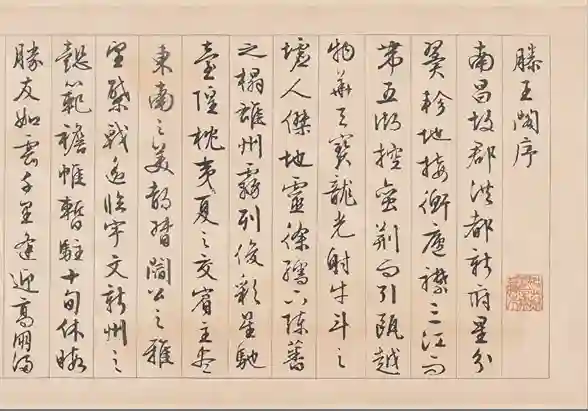 滕王閣序
南昌故郡洪都新府星分
翼軫地接衡廬襟三江而
帶五湖控蠻荊而引甌越
物華天寶龍光射牛斗之
墟人傑地靈徐孺下陳蕃
之榻雄州霧列俊彩星馳
臺隍枕夷夏之交賓主盡
東南之美都督閻公之雅
望棨戟遙臨宇文新州之
懿範襜帷暫駐十旬休暇
勝友如雲千里逢迎高朋滿